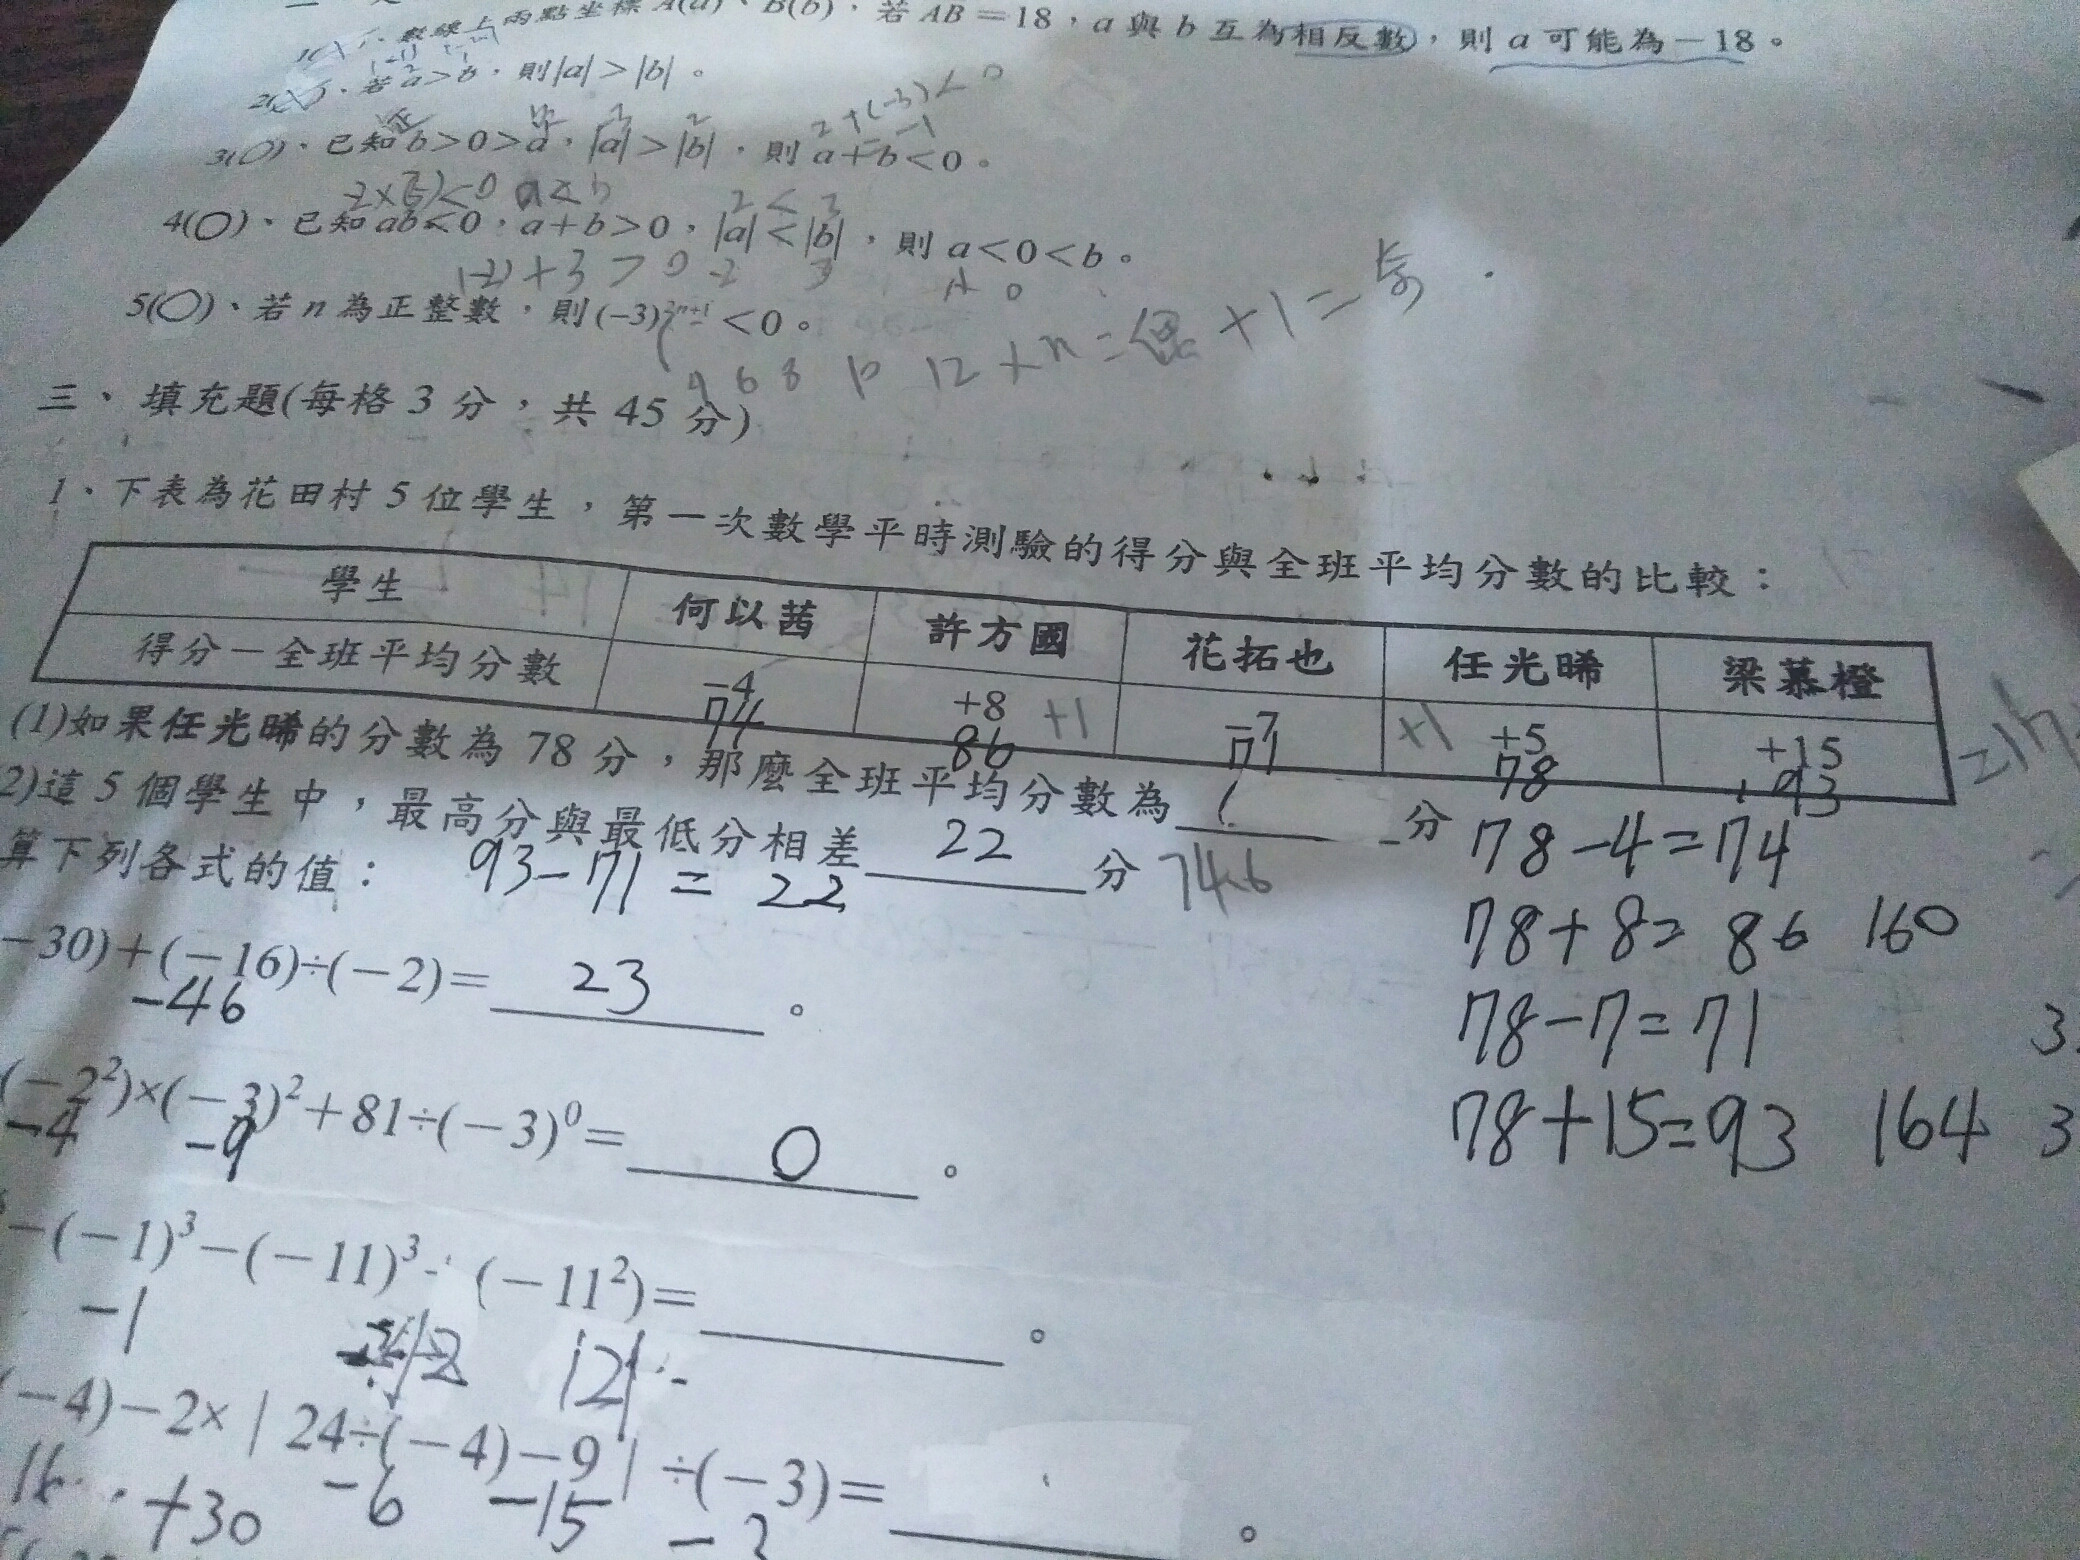 數線上兩點坐標A(a)、B(b),若AB=18,a與b互為相反數,則a可能為-18。
2(X)、若a>b,則|a|>|b|。
2+(-3)<0
-1
3(O)、已知b>0>a,|a|>|b|,則a+b<0。
4(O)、已知ab<0,a+b>0,|a|<|b|,則a<0<b。
(-2)+3>0 -2 3
5(O)、若n為正整數,則(-3)²ⁿ⁺¹<0。
4 6 8 10 12
+1=奇
三、填充題(每格3分,共45分)
1、下表為花田村5位學生,第一次數學平時測驗的得分與全班平均分數的比較:
學生 何以茜 許方國 花拓也 任光晞 梁慕橙
得分-全班平均分數 -4 +8 -7 +5 +15
74 86 +1 71 +1 78 93
(1)如果任光晞的分數為78分,那麼全班平均分數為 分
74.6
(2)這5個學生中,最高分與最低分相差 22 分
93-71=22
78-4=74
78+8=86 160
78-7=71
78+15=93 164
算下列各式的值:
-30)+(-16)÷(-2)= 23 。
-46
(-2²)×(-3)²+81÷(-3)⁰= 0 。
-4 -9
-(-1)³-(-11)³ (-11²)= 。
-1 121
(-4)-2×|24÷(-4)-9|÷(-3)= 。
+30 -6 -15